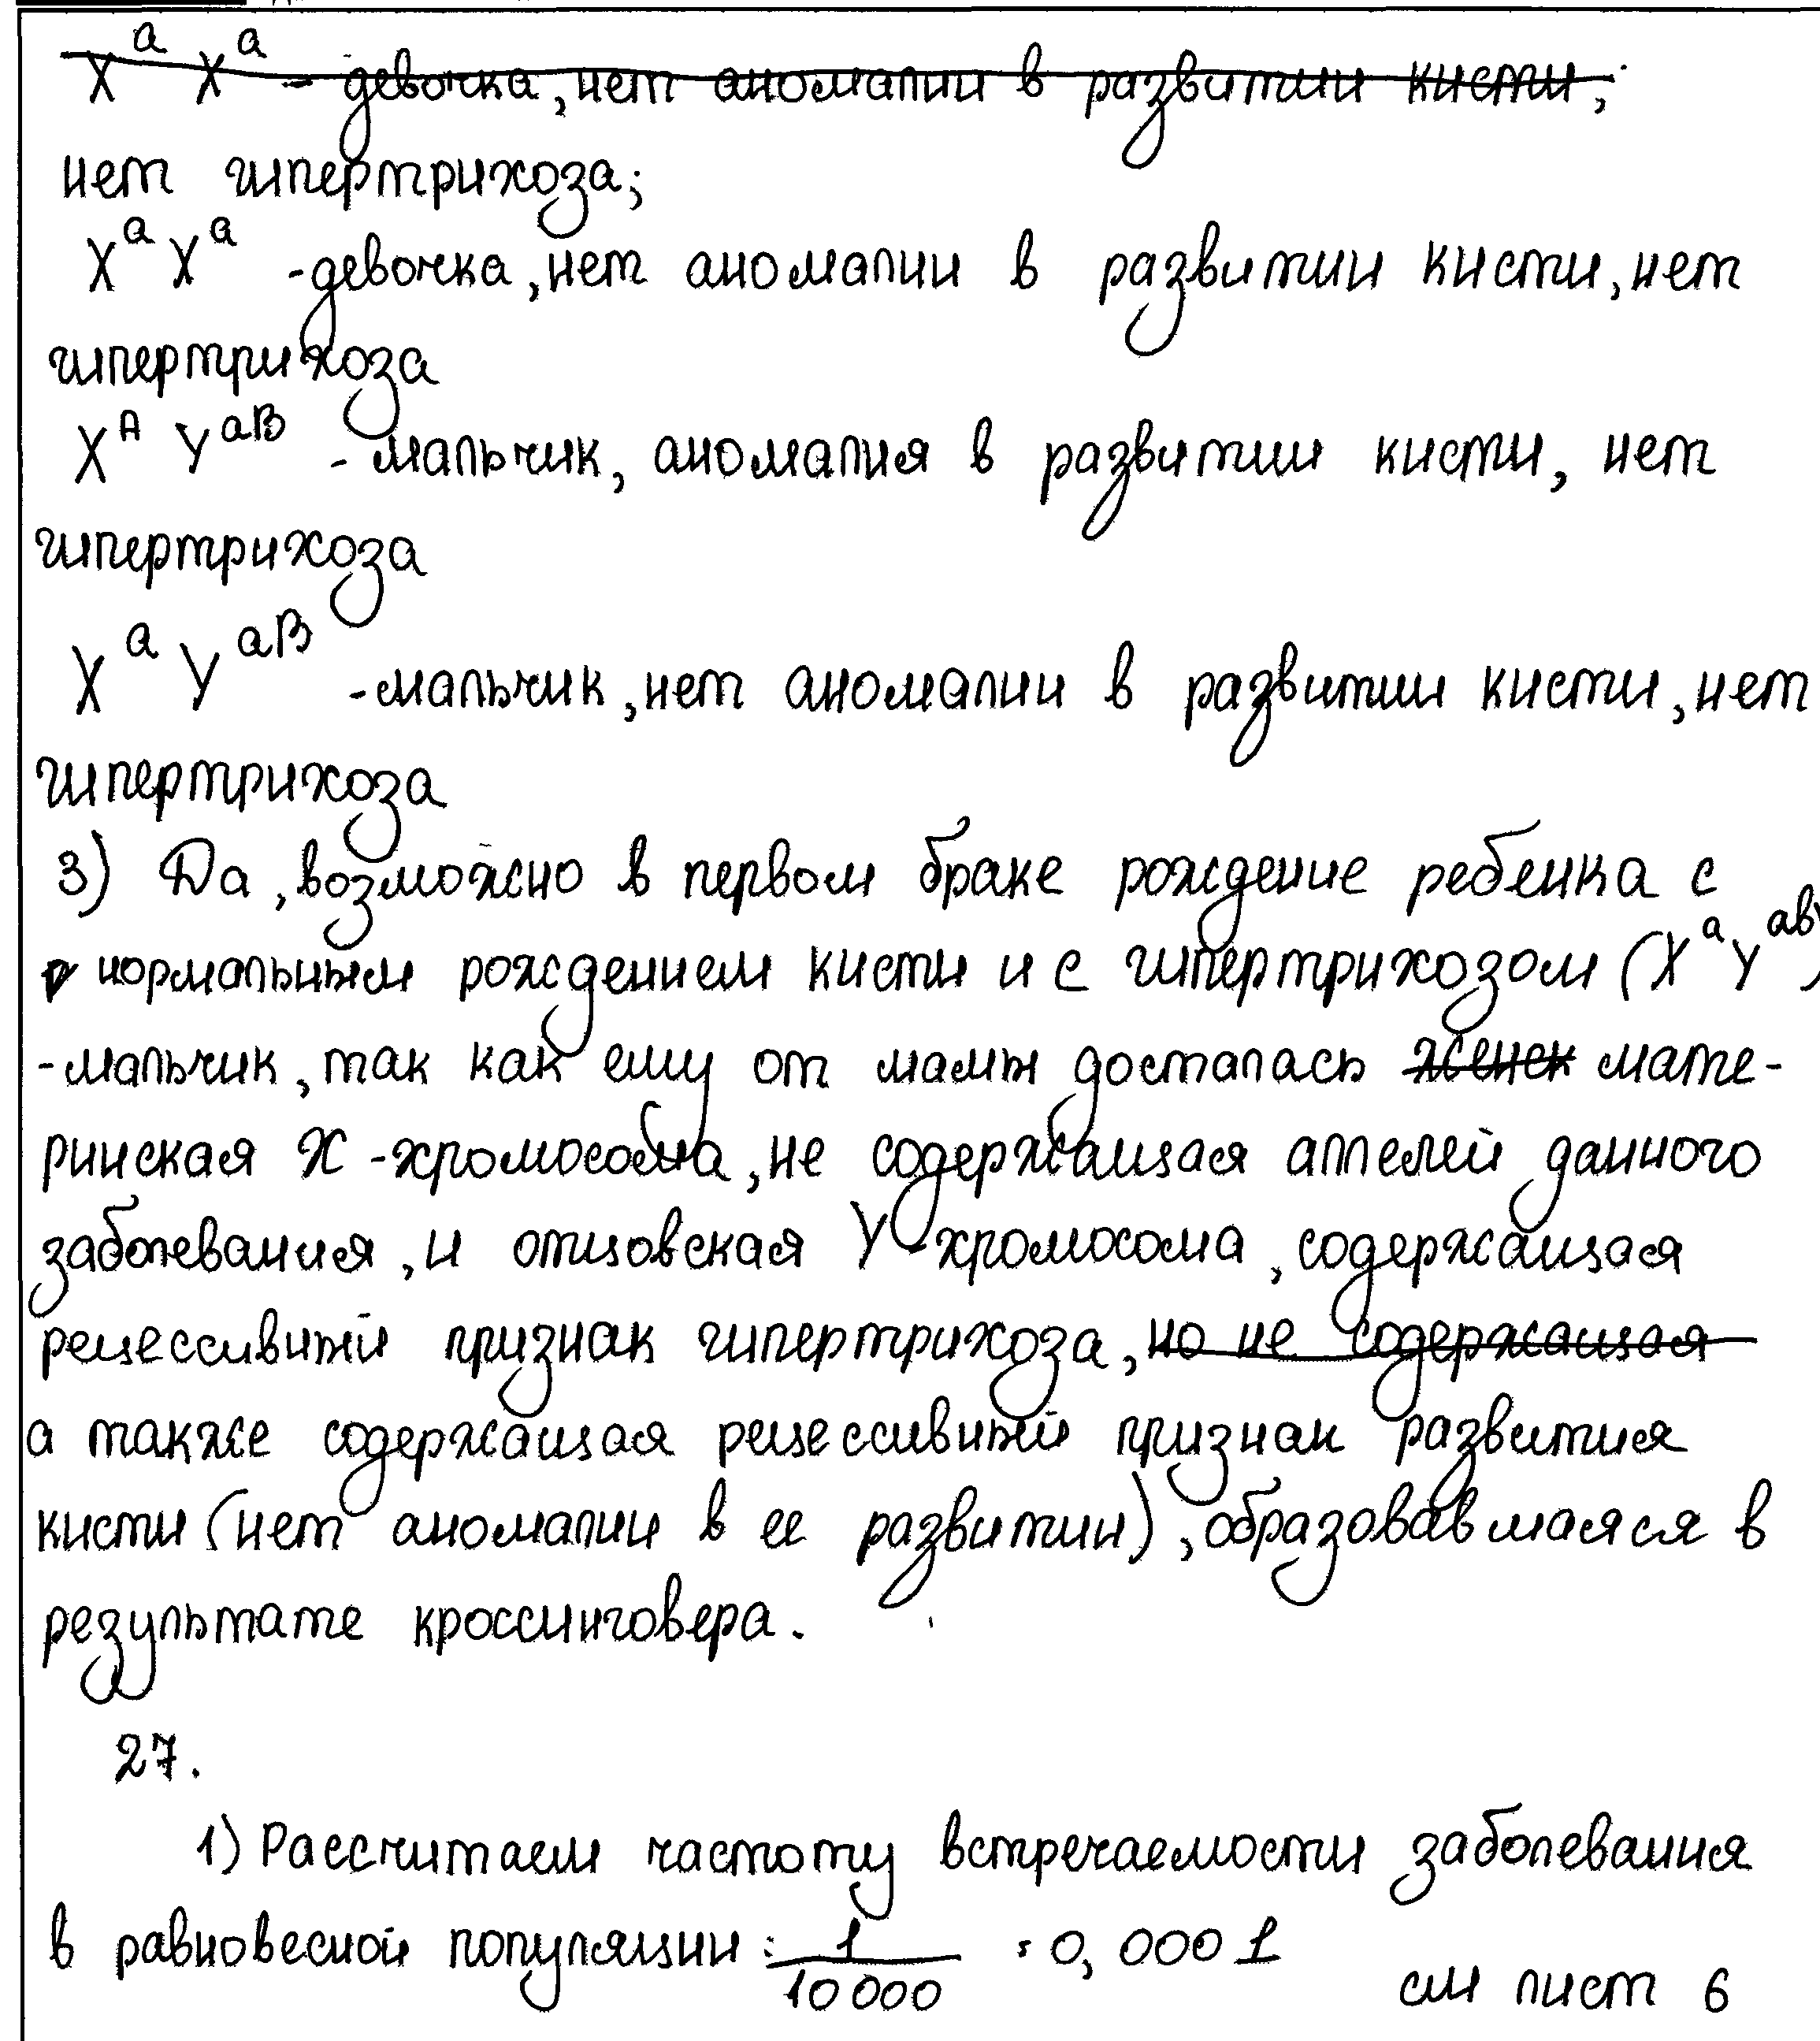 XᵃXᵃ - девочка, нет аномалии в развитии кисти;
нет гипертрихоза;
XᵃXᵃ - девочка, нет аномалии в развитии кисти, нет
гипертрихоза
Xᴬ Yᵃᴮ - мальчик, аномалия в развитии кисти, нет
гипертрихоза
Xᵃ Yᵃᴮ - мальчик, нет аномалии в развитии кисти, нет
гипертрихоза
3) Да, возможно в первом браке рождение ребенка с
нормальным рождением кисти и с гипертрихозом (XᵃYᵃᵇ)
- мальчик, так как ему от мамы досталась женск мате-
ринская X-хромосома, не содержащая аллелей данного
заболевания, и отцовская Y-хромосома, содержащая
рецессивный признак гипертрихоза, но не содержащая
а также содержащая рецессивный признак развития
кисти (нет аномалии в ее развитии), образовавшаяся в
результате кроссинговера.
27.
1) Рассчитаем частоту встречаемости заболевания
в равновесной популяции: 1/10000 = 0,0001
см лист 6